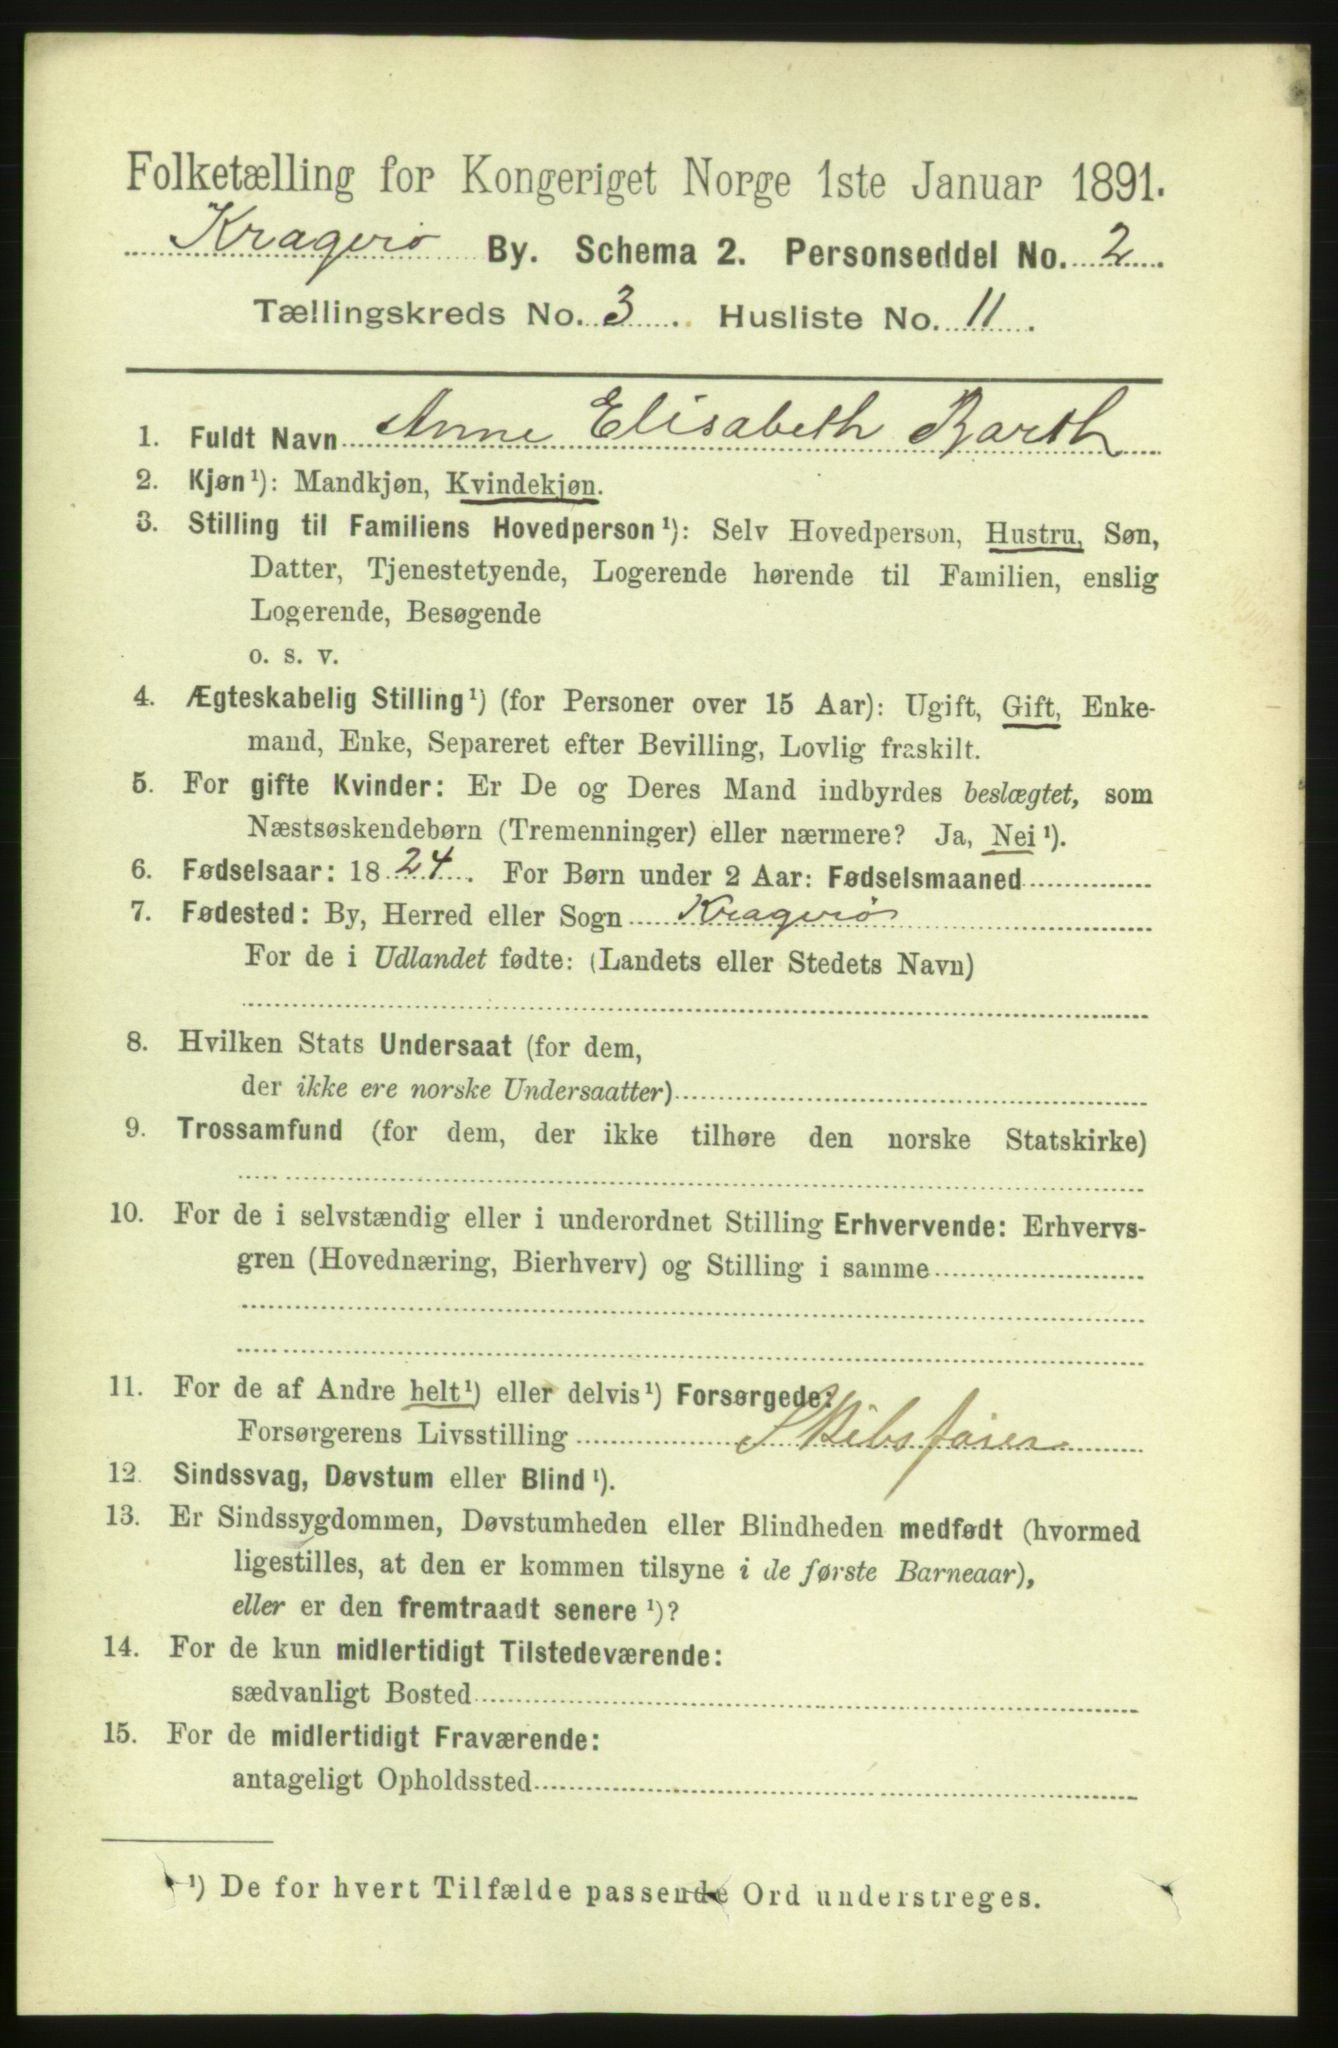 Folketælling for Kongeriget Norge 1ste Januar 1891.
Kragerø By. Schema 2. Personseddel No. 2
Tællingskreds No. 3. Husliste No. 11.
1. Fuldt Navn Anne Elisabeth Barth
2. Kjøn¹): Mandkjøn, Kvindekjøn.
3. Stilling til Familiens Hovedperson¹): Selv Hovedperson, Hustru, Søn,
Datter, Tjenestetyende, Logerende hørende til Familien, enslig
Logerende, Besøgende
o. s. v.
4. Ægteskabelig Stilling¹) (for Personer over 15 Aar): Ugift, Gift, Enke-
mand, Enke, Separeret efter Bevilling, Lovlig fraskilt.
5. For gifte Kvinder: Er De og Deres Mand indbyrdes beslægtet, som
Næstsøskendebørn (Tremenninger) eller nærmere? Ja, Nei¹).
6. Fødselsaar: 1824. For Børn under 2 Aar: Fødselsmaaned
7. Fødested: By, Herred eller Sogn Kragerø
For de i Udlandet fødte: (Landets eller Stedets Navn)
8. Hvilken Stats Undersaat (for dem,
der ikke ere norske Undersaatter)
9. Trossamfund (for dem, der ikke tilhøre den norske Statskirke)
10. For de i selvstændig eller i underordnet Stilling Erhvervende: Erhvervs-
gren (Hovednæring, Bierhverv) og Stilling i samme
11. For de af Andre helt¹) eller delvis¹) Forsørgede:
Forsørgerens Livsstilling Skibsfører
12. Sindssvag, Døvstum eller Blind¹).
13. Er Sindssygdommen, Døvstumheden eller Blindheden medfødt (hvormed
ligestilles, at den er kommen tilsyne i de første Barneaar),
eller er den fremtraadt senere¹)?
14. For de kun midlertidigt Tilstedeværende:
sædvanligt Bosted
15. For de midlertidigt Fraværende:
antageligt Opholdssted
¹) De for hvert Tilfælde passende Ord understreges.